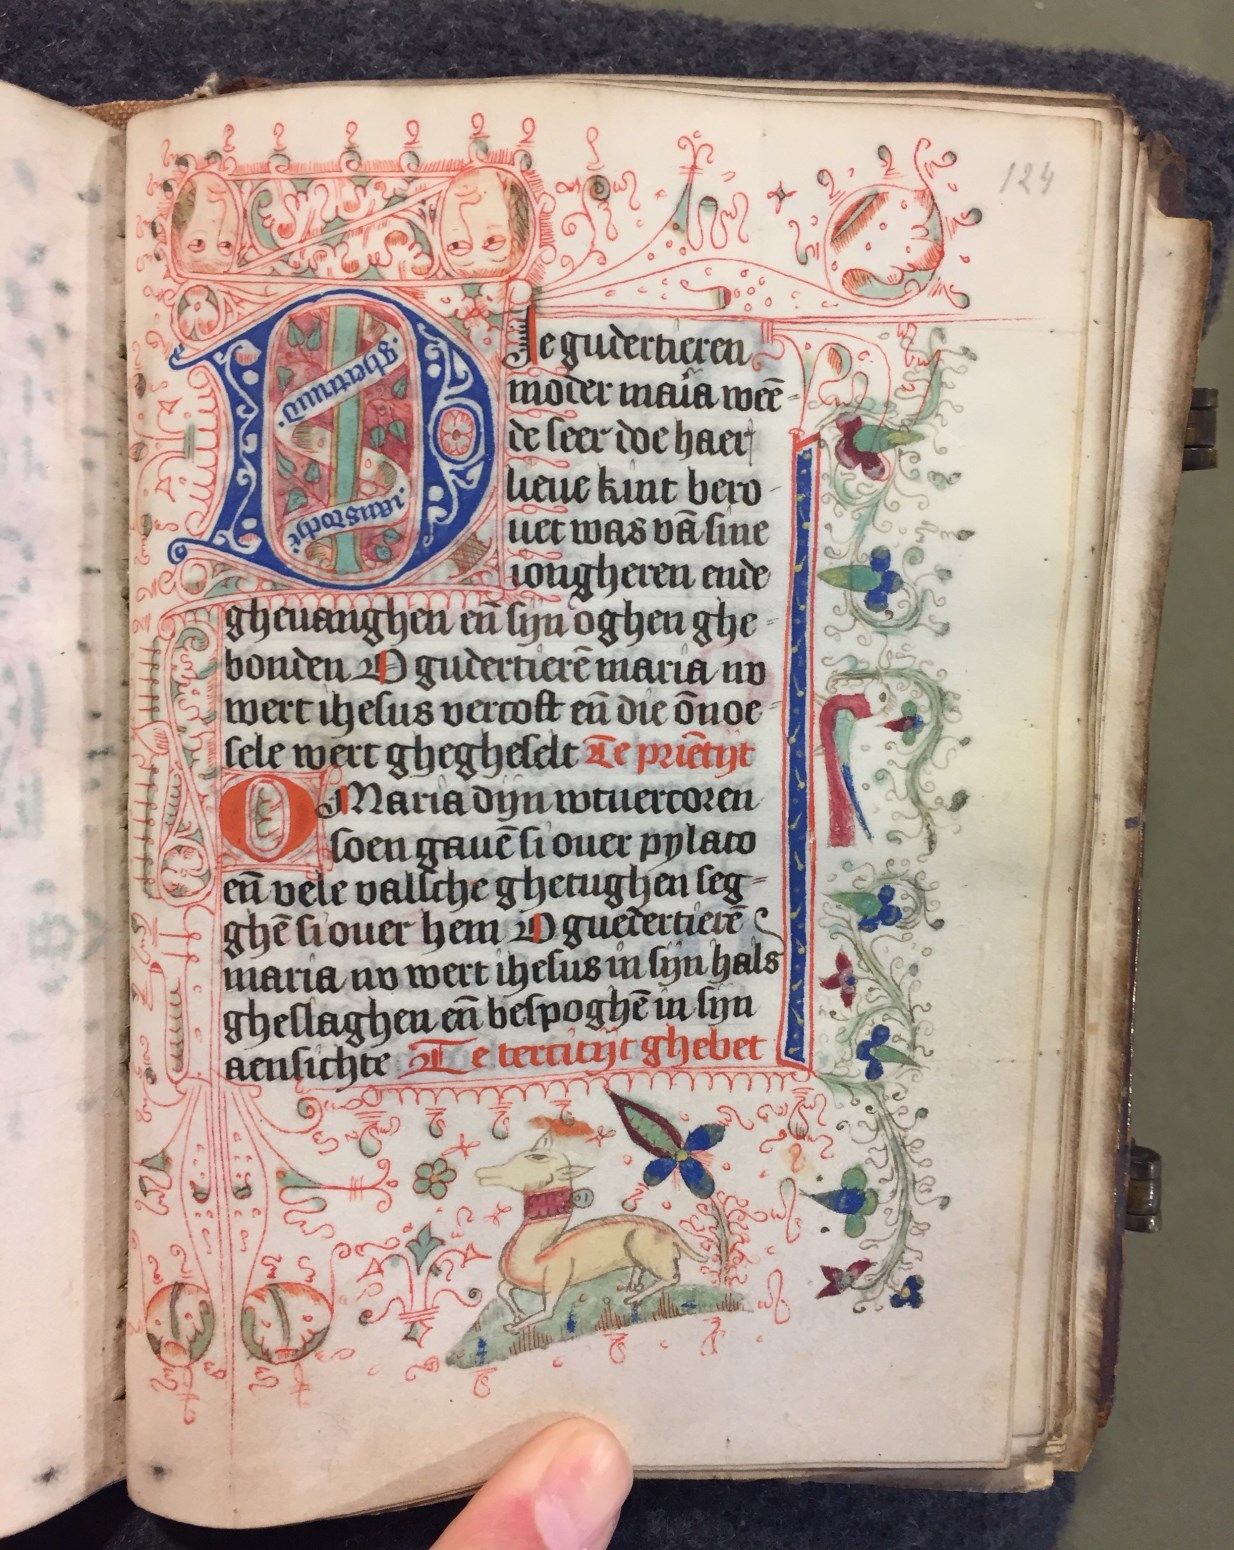 124
ghertruud
ians dochter
Die gudertieren
moder maria weē-
de seer doe haer
lieue kint bero-
uet was vā sine
iongheren ende
gheuanghen eñ sijn oghen ghe-
bonden O gudertierē maria nv
wert ihesus vercoft eñ die ōnoe-
sele wert ghegheselt Te priētijt
O Maria dijn wtuercoren
soen gauē si ouer pylato
eñ vele valsche ghetughen seg-
ghē si ouer hem O guedertierē
maria nv wert ihesus in sijn hals
gheslaghen eñ bespoghē in sijn
aensichte Te tercitijt ghebet